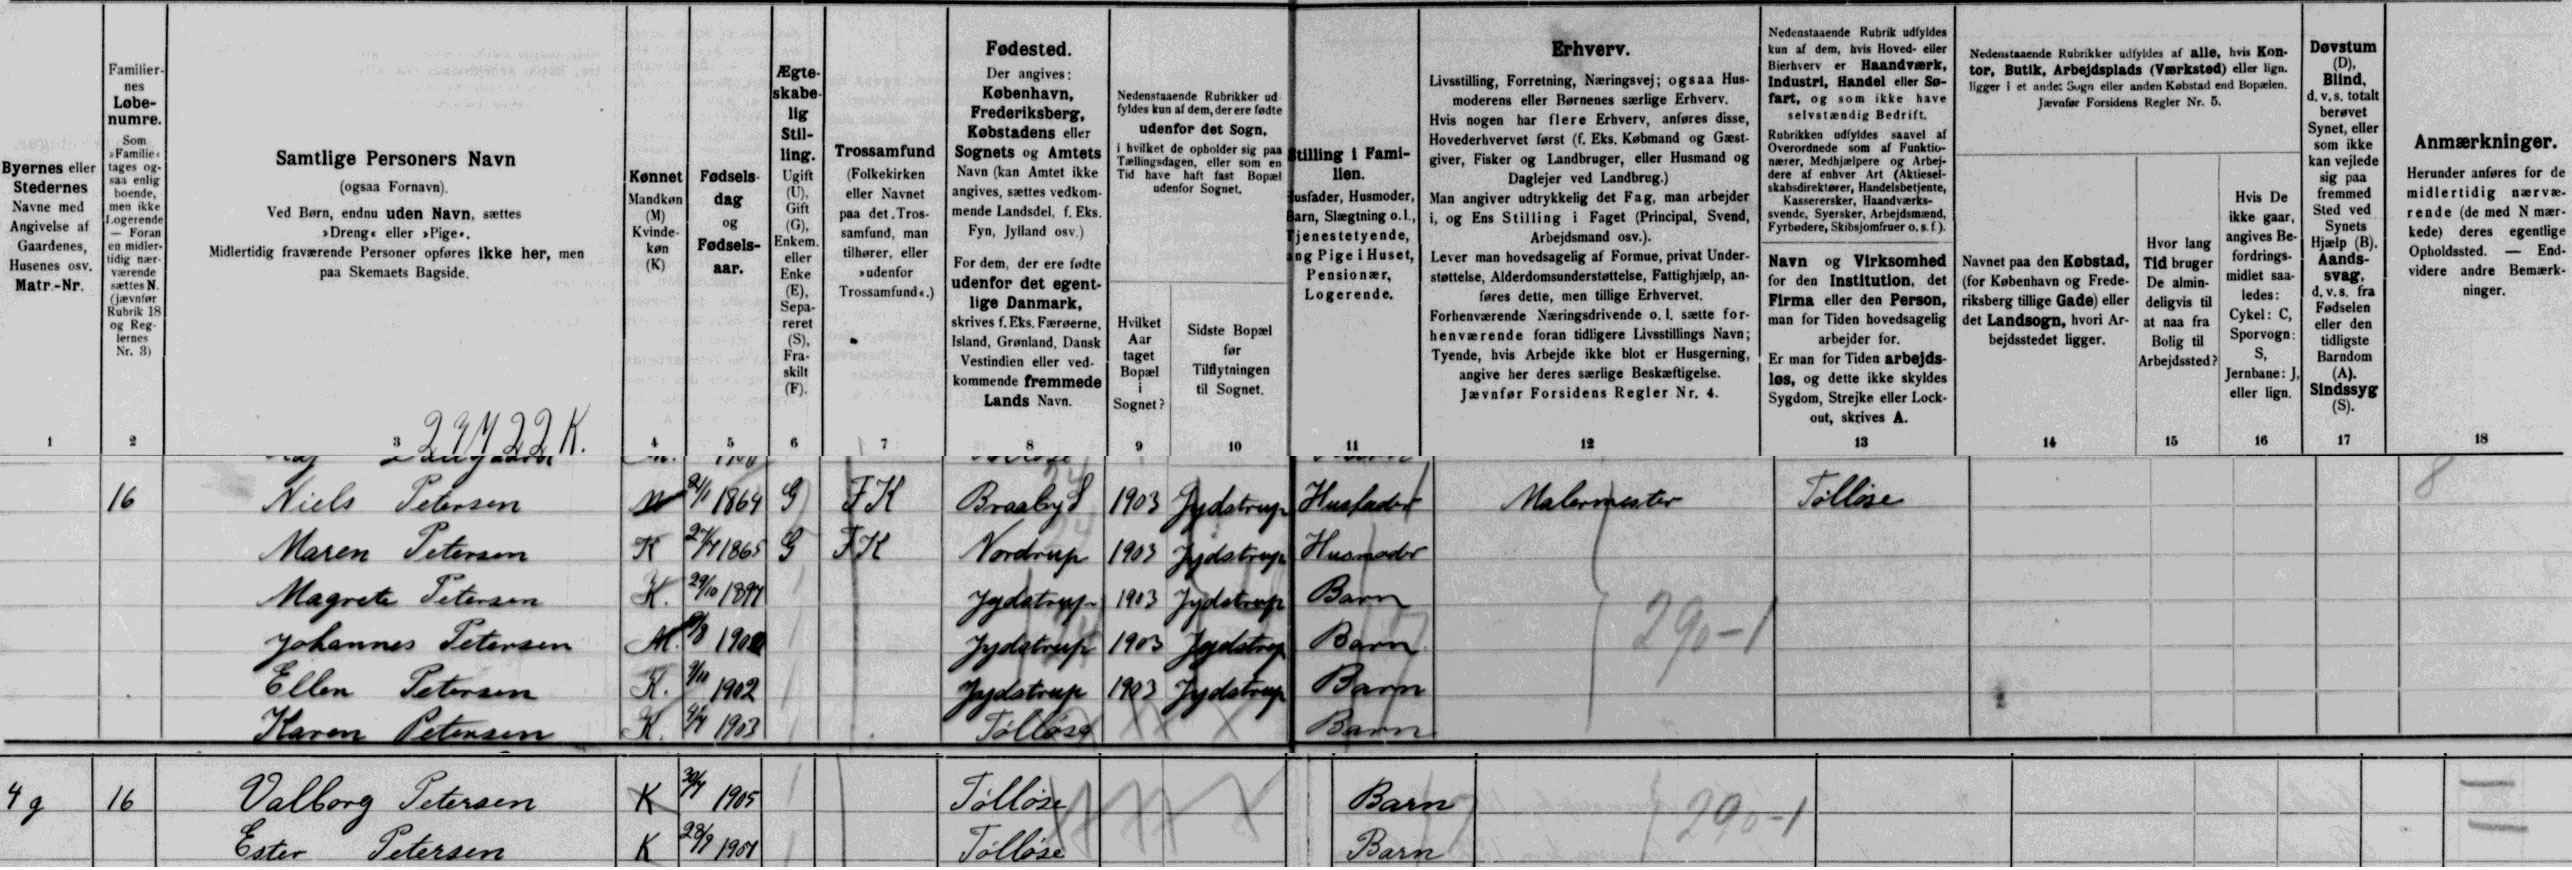 Byernes eller
Stedernes
Navne med
Angivelse af
Gaardenes,
Husenes osv.
Matr.-Nr.
1
Familier-
nes
Løbe-
numre.
Som
»Familie«
tages og-
saa enlig
boende,
men ikke
Logerende
— Foran
en midler-
tidig nær-
værende
sættes N.
(jævnfør
Rubrik 18
og Reg-
lernes
Nr. 3)
2
Samtlige Personers Navn
(ogsaa Fornavn).
Ved Børn, endnu uden Navn, sættes
»Dreng« eller »Pige«.
Midlertidig fraværende Personer opføres ikke her, men
paa Skemaets Bagside.
3
Kønnet
Mandkøn
(M)
Kvinde-
køn
(K)
4
Fødsels-
dag
og
Fødsels-
aar.
5
Ægte-
skabe-
lig
Stil-
ling.
Ugift
(U),
Gift
(G),
Enkem.
eller
Enke
(E),
Sepa-
reret
(S),
Fra-
skilt
(F).
6
Trossamfund
(Folkekirken
eller Navnet
paa det Tros-
samfund, man
tilhører, eller
»udenfor
Trossamfund«.)
7
Fødested.
Der angives:
København,
Frederiksberg,
Købstadens eller
Sognets og Amtets
Navn (kan Amtet ikke
angives, sættes vedkom-
mende Landsdel, f. Eks.
Fyn, Jylland osv.)
For dem, der ere fødte
udenfor det egent-
lige Danmark,
skrives f. Eks. Færøerne,
Island, Grønland, Dansk
Vestindien eller ved-
kommende fremmede
Lands Navn.
8
Nedenstaaende Rubrikker ud
fyldes kun af dem, der ere fødte
udenfor det Sogn,
i hvilket de opholder sig paa
Tællingsdagen, eller som en
Tid have haft fast Bopæl
udenfor Sognet.
Hvilket
Aar
taget
Bopæl
i
Sognet?
9
Sidste Bopæl
før
Tilflytningen
til Sognet.
10
Stilling i Fami-
lien.
Husfader, Husmoder,
Barn, Slægtning o.l.,
Tjenestetyende,
ung Pige i Huset,
Pensionær,
Logerende.
11
Erhverv.
Livsstilling, Forretning, Næringsvej; ogsaa Hus-
moderens eller Børnenes særlige Erhverv.
Hvis nogen har flere Erhverv, anføres disse,
Hovederhvervet først (f. Eks. Købmand og Gæst-
giver, Fisker og Landbruger, eller Husmand og
Daglejer ved Landbrug.)
Man angiver udtrykkelig det Fag, man arbejder
i, og Ens Stilling i Faget (Principal, Svend,
Arbejdsmand osv.).
Lever man hovedsagelig af Formue, privat Under-
støttelse, Alderdomsunderstøttelse, Fattighjælp, an-
føres dette, men tillige Erhvervet.
Forhenværende Næringsdrivende o. l. sætte for-
henværende foran tidligere Livsstillings Navn;
Tyende, hvis Arbejde ikke blot er Husgerning,
angive her deres særlige Beskæftigelse.
Jævnfør Forsidens Regler Nr. 4.
12
Nedenstaaende Rubrik udfyldes
kun af dem, hvis Hoved- eller
Bierhverv er Haandværk,
Industri, Handel eller Sø-
fart, og som ikke have
selvstændig Bedrift.
Rubrikken udfyldes saavel af
Overordnede som af Funktio-
nærer, Medhjælpere og Arbej-
dere af enhver Art (Aktiesel-
skabsdirektører, Handelsbetjente,
Kasserersker, Haandværks-
svende, Syersker, Arbejdsmænd,
Fyrbødere, Skibsjomfruer o. s. f.).
Navn og Virksomhed
for den Institution, det
Firma eller den Person,
man for Tiden hovedsagelig
arbejder for.
Er man for Tiden arbejds-
løs, og dette ikke skyldes
Sygdom, Strejke eller Lock-
out, skrives A.
13
Nedenstaaende Rubrikker udfyldes af alle, hvis Kon-
tor, Butik, Arbejdsplads (Værksted) eller lign.
ligger i et andet Sogn eller anden Købstad end Bopælen.
Jævnfør Forsidens Regler Nr. 5.
Navnet paa den Købstad,
(for København og Frede-
riksberg tillige Gade) eller
det Landsogn, hvori Ar-
bejdsstedet ligger.
14
Hvor lang
Tid bruger
De almin-
deligvis til
at naa fra
Bolig til
Arbejdssted?
15
Hvis De
ikke gaar,
angives Be-
fordrings-
midlet saa-
ledes:
Cykel: C,
Sporvogn:
S,
Jernbane: J,
eller lign.
16
Døvstum
(D),
Blind,
d. v. s. totalt
berøvet
Synet, eller
som ikke
kan vejlede
sig paa
fremmed
Sted ved
Synets
Hjælp (B).
Aands-
svag,
d. v. s. fra
Fødselen
eller den
tidligste
Barndom
(A).
Sindssyg
(S).
17
Anmærkninger.
Herunder anføres for de
midlertidig nærvæ-
rende (de med N mær-
kede) deres egentlige
Opholdssted. — End-
videre andre Bemærk-
ninger.
18
16 Niels Petersen 1864 G FK Braaby S 1903 Jydstrup Husfader Malermester Tølløse 8
Maren Petersen K 1865 G FK Nordrup 1903 Jydstrup Husmoder
Magrete Petersen K. 29/10 1897 Jydstrup 1903 Jydstrup Barn
Johannes Petersen M. Jydstrup 1903 Jydstrup Barn 290-1
Ellen Petersen K. 1902 Jydstrup 1903 Jydstrup Barn
Karen Petersen K. 1903 Tølløse Barn
4 g 16 Valborg Petersen K 1905 Tølløse Barn 290-1
Ester Petersen K 28/9 Tølløse Barn